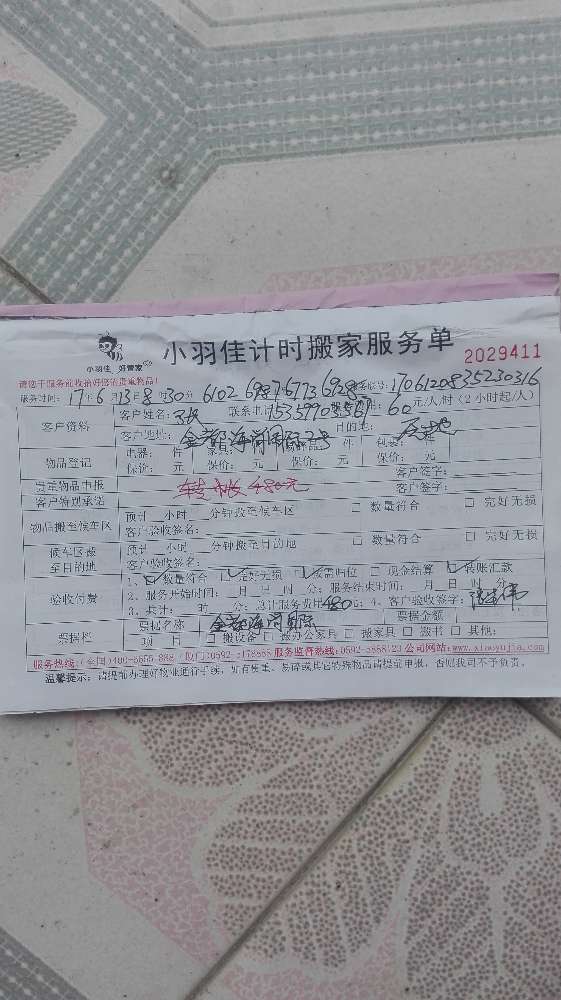 小羽佳 好管家
小羽佳计时搬家服务单
2029411
请您于服务前收拾好您的贵重物品!
服务时间: 17年6月13日8时30分 6102 6987 6773 6928 170612083523 0316
客户资料 客户姓名: 联系电 15359903567 60 元/人/时(2小时起/人)
客户地址: 金都海尚国际2号 目的地:
物品登记 电器: 件 家具: 件 件 包装: 程
保价: 元 保价: 元 保价: 元 保价: 元
贵重物品申报 转帐480元 客户签字:
客户特别承诺 客户签字:
物品搬至候车区 预计__小时__分钟搬至候车区 □ 数量符合 □ 完好无损
客户验收签名:
候车区搬至目的地 预计__小时__分钟搬至目的地 □ 数量符合 □ 完好无损
客户验收签名:
验收付费 1、☑数量符合 ☑完好无损 ☑按需归位 □ 现金结算 ☑转账汇款
2、服务开始时间: 月 日 时 分; 服务结束时间: 月 日 时 分
3、共计: 时 分; 总计服务费用480元; 4、客户验收签字:
票据栏 票据名称 金都海尚国际 票据金额
项 目 □搬设备 □搬办公家具 □ 搬家具 □ 搬书 □ 其他:
公司网站:www.xiaoyujia.com
温馨提示: 请提前办理好物业通行手续,如有贵重、易碎或其它特殊物品请提前申报,否则我司不予负责。